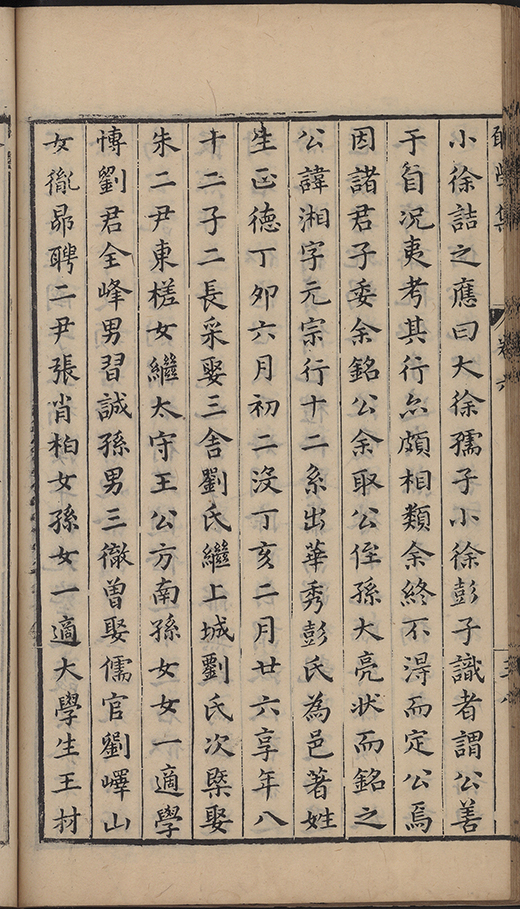 集
卷六
小徐詰之應曰大徐孺子小徐彭子識者謂公善
于自況夷考其行亦頗相類余終不淂而定公焉
因諸君子委余銘公余取公侄孫大亮狀而銘之
公諱湘字元宗行十二系出華秀彭氏為邑著姓
生正德丁卯六月初二没丁亥二月廿六享年八
十二子二長采娶三舍劉氏繼上城劉氏次棨娶
朱二尹東槎女繼太守王公方南孫女女一適學
博劉君全峰男習誠孫男三徵曾娶儒官劉嶧山
女胤昴聘二尹張肖柏女孫女一適大學生王材